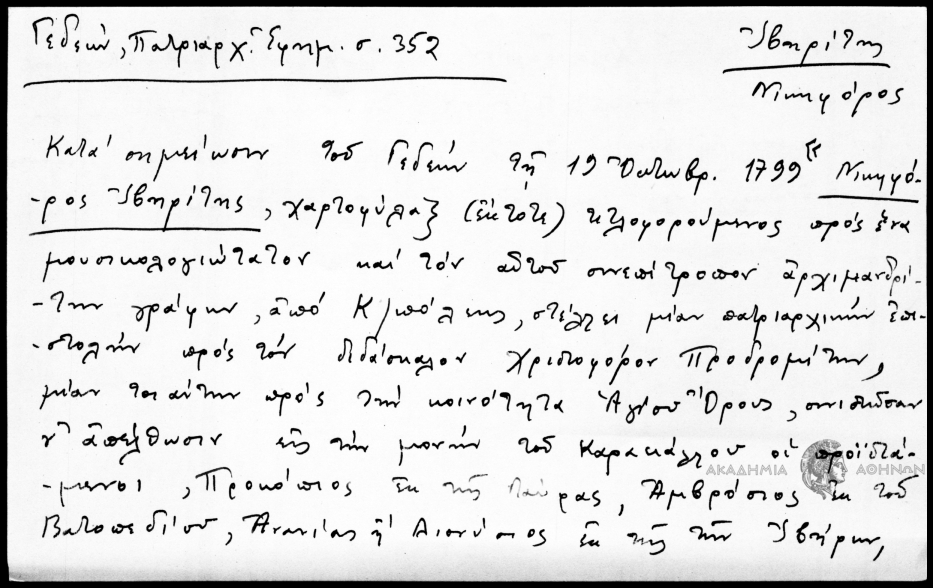 Γεδεών, Πατριαρχ. Ἐφημ. σ. 352
Ἰβηρίτης
Νικηφόρος
Κατά σημείωσιν τοῦ Γεδεών τῇ 19 Ὀκτωβρ. 1799 "Νικηφό-
-ρος Ἰβηρίτης, χαρτοφύλαξ (ἔκτοτε) τιτλοφορούμενος πρός ἕνα
μουσικολογιώτατον καί τόν αὐτοῦ συνεπίτροπον ἀρχιμανδρί-
-την γράφων, ἀπό Κ/πόλεως, στέλλει μίαν πατριαρχικήν ἐπι-
-στολήν πρός τόν διδάσκαλον Χριστοφόρον Προδρομίτην,
μίαν τοιαύτην πρός τήν κοινότητα Ἁγίου Ὄρους, σπεύδουσαν
ν' ἀπέλθωσιν εἰς τήν μονήν τοῦ Καρακάλλου οἱ προϊστά-
-μενοι, Προκόπιος ἐκ τῆς Λαύρας, Ἀμβρόσιος ἐκ τοῦ
Βατοπεδίου, Ἀνανίας ἤ Διονύσιος ἐκ τῆς τῶν Ἰβήρων,
ΑΚΑΔΗΜΙΑ ΑΘΗΝΩΝ